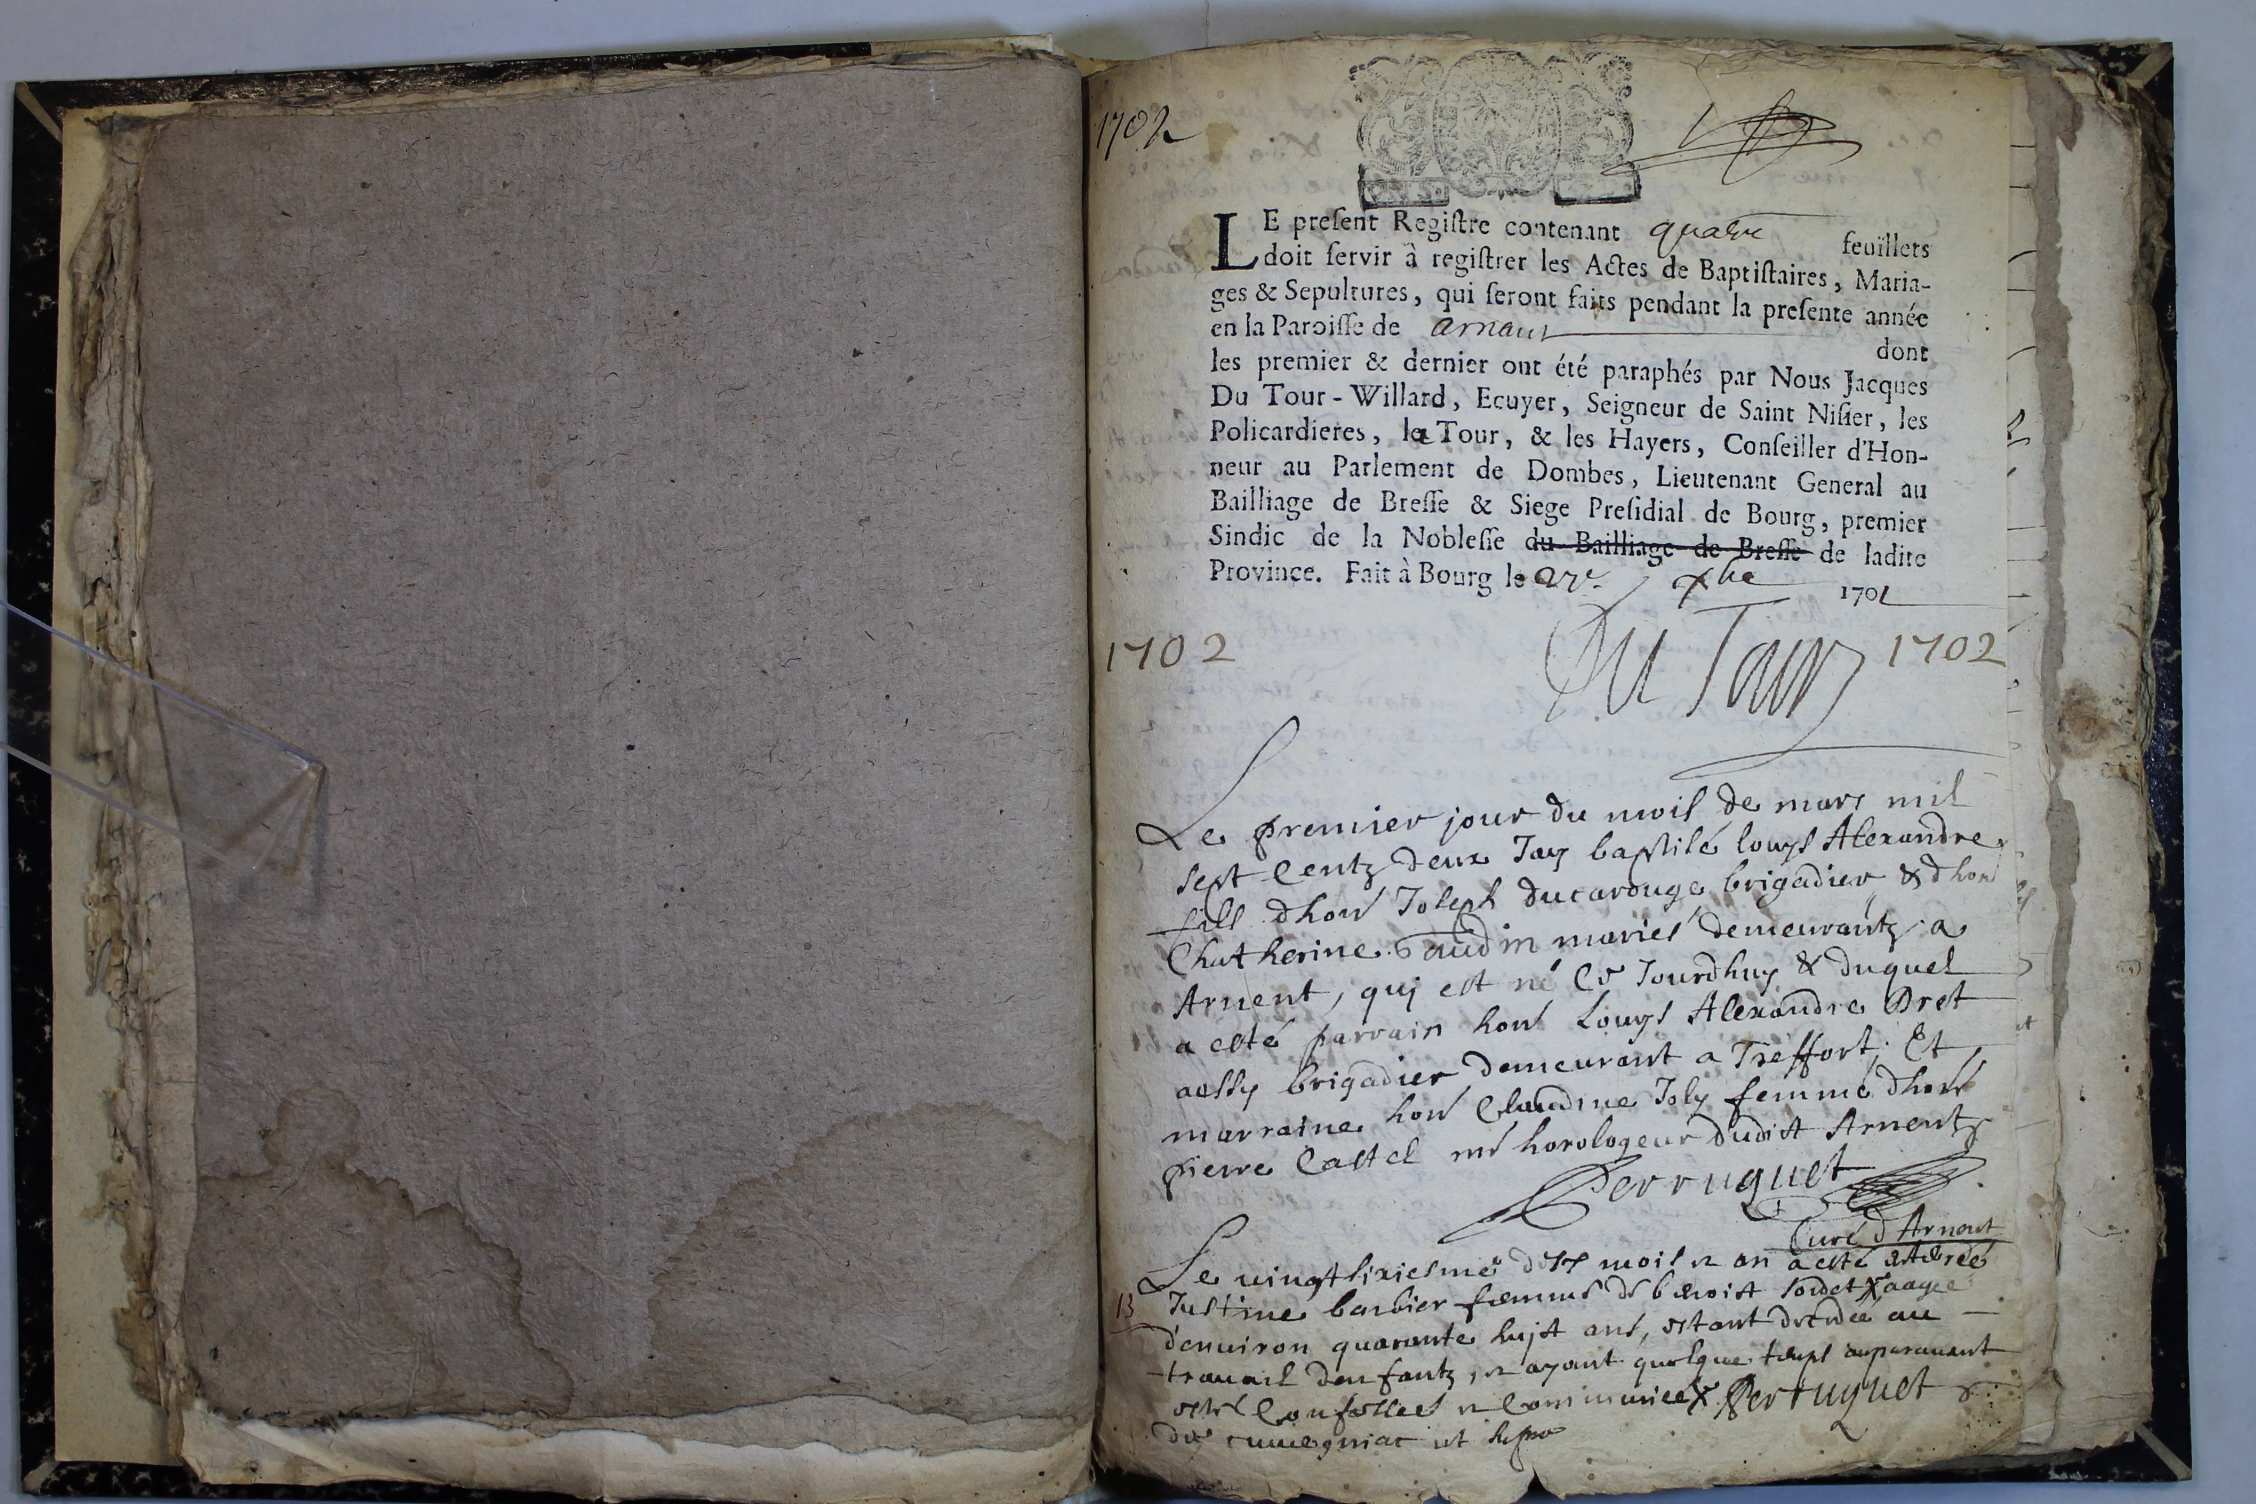 1702
LE preſent Regiſtre contenant quatre feuïllets
doit ſervir â regiſtrer les Actes de Baptiſtaires, Maria-
ges & Sepultures, qui ſeront faits pendant la preſente année
en la Paroiſſe de arnant dont
les premier & dernier ont été paraphés par Nous Jacques
Du Tour-Willard, Ecuyer, Seigneur de Saint Niſier, les
Policardieres, la Tour, & les Hayers, Conſeiller d'Hon-
neur au Parlement de Dombes, Lieutenant General au
Bailliage de Breſſe & Siege Preſidial de Bourg, premier
Sindic de la Nobleſſe du Bailliage de Breſſe de ladite
Province. Fait à Bourg le xbre 1701
1702 Du Tour 1702
Le premier jour du mois de mars mil
sept Centz deux Jay baptisé louys Alexandre
fils dhon Joseph ducarouge brigadier & dhon
Chatherine Gaudin mariés demeurantz a
Arnent, qui est né Ce Jourdhuy & duquel
a esté parrain hon Louys Alexandre Dret
aussy brigadier demeurant a Treffort. Et
marraine hon Claudine Joly femme dhon
pierre Castel me horologeur dudit Arnentz
Perruquet
Curé d'Arnent
Le vingtsixiesme des mois & an a esté enterrée
13 Justine barbier femme de benoist soudet aagée
denuiron quarante hujt ans, estant decedée au
trauail denfantz, & ayant quelque temps auparauant
esté Confessee & Communiee Perruquet
de cuuegniac ut supra